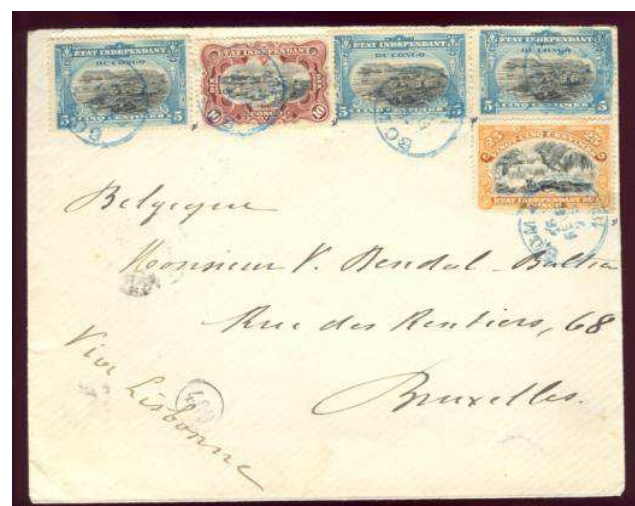 ETAT INDEPENDANT
DU CONGO
5 CINQ CENTIMES 5
ETAT INDEPENDANT
DU CONGO
10 10
ETAT INDEPENDANT
DU CONGO
5 CINQ CENTIMES 5
ETAT INDEPENDANT
DU CONGO
5 CINQ CENTIMES 5
25 25
ETAT INDEPENDANT DU
CONGO
Belgique
Monsieur V. Bendal-
Rue des Rentiers, 68
Bruxelles.
Via Lisbonne